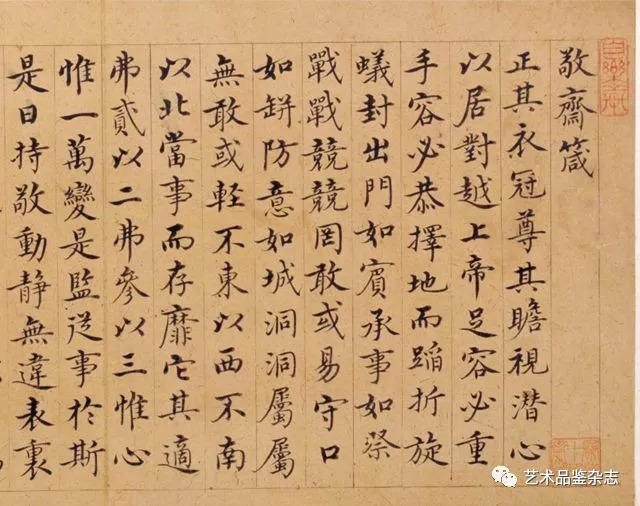 敬齋箴
正其衣冠尊其瞻視潜心
以居對越上帝足容必重
手容必恭擇地而蹈折旋
蟻封出門如賓承事如祭
戰戰競競罔敢或易守口
如缾防意如城洞洞屬屬
無敢或軽不東以西不南
以北當事而存靡它其適
弗貳以二弗參以三惟心
惟一萬變是監従事於斯
是曰持敬動靜無違表裏
艺术品鉴杂志